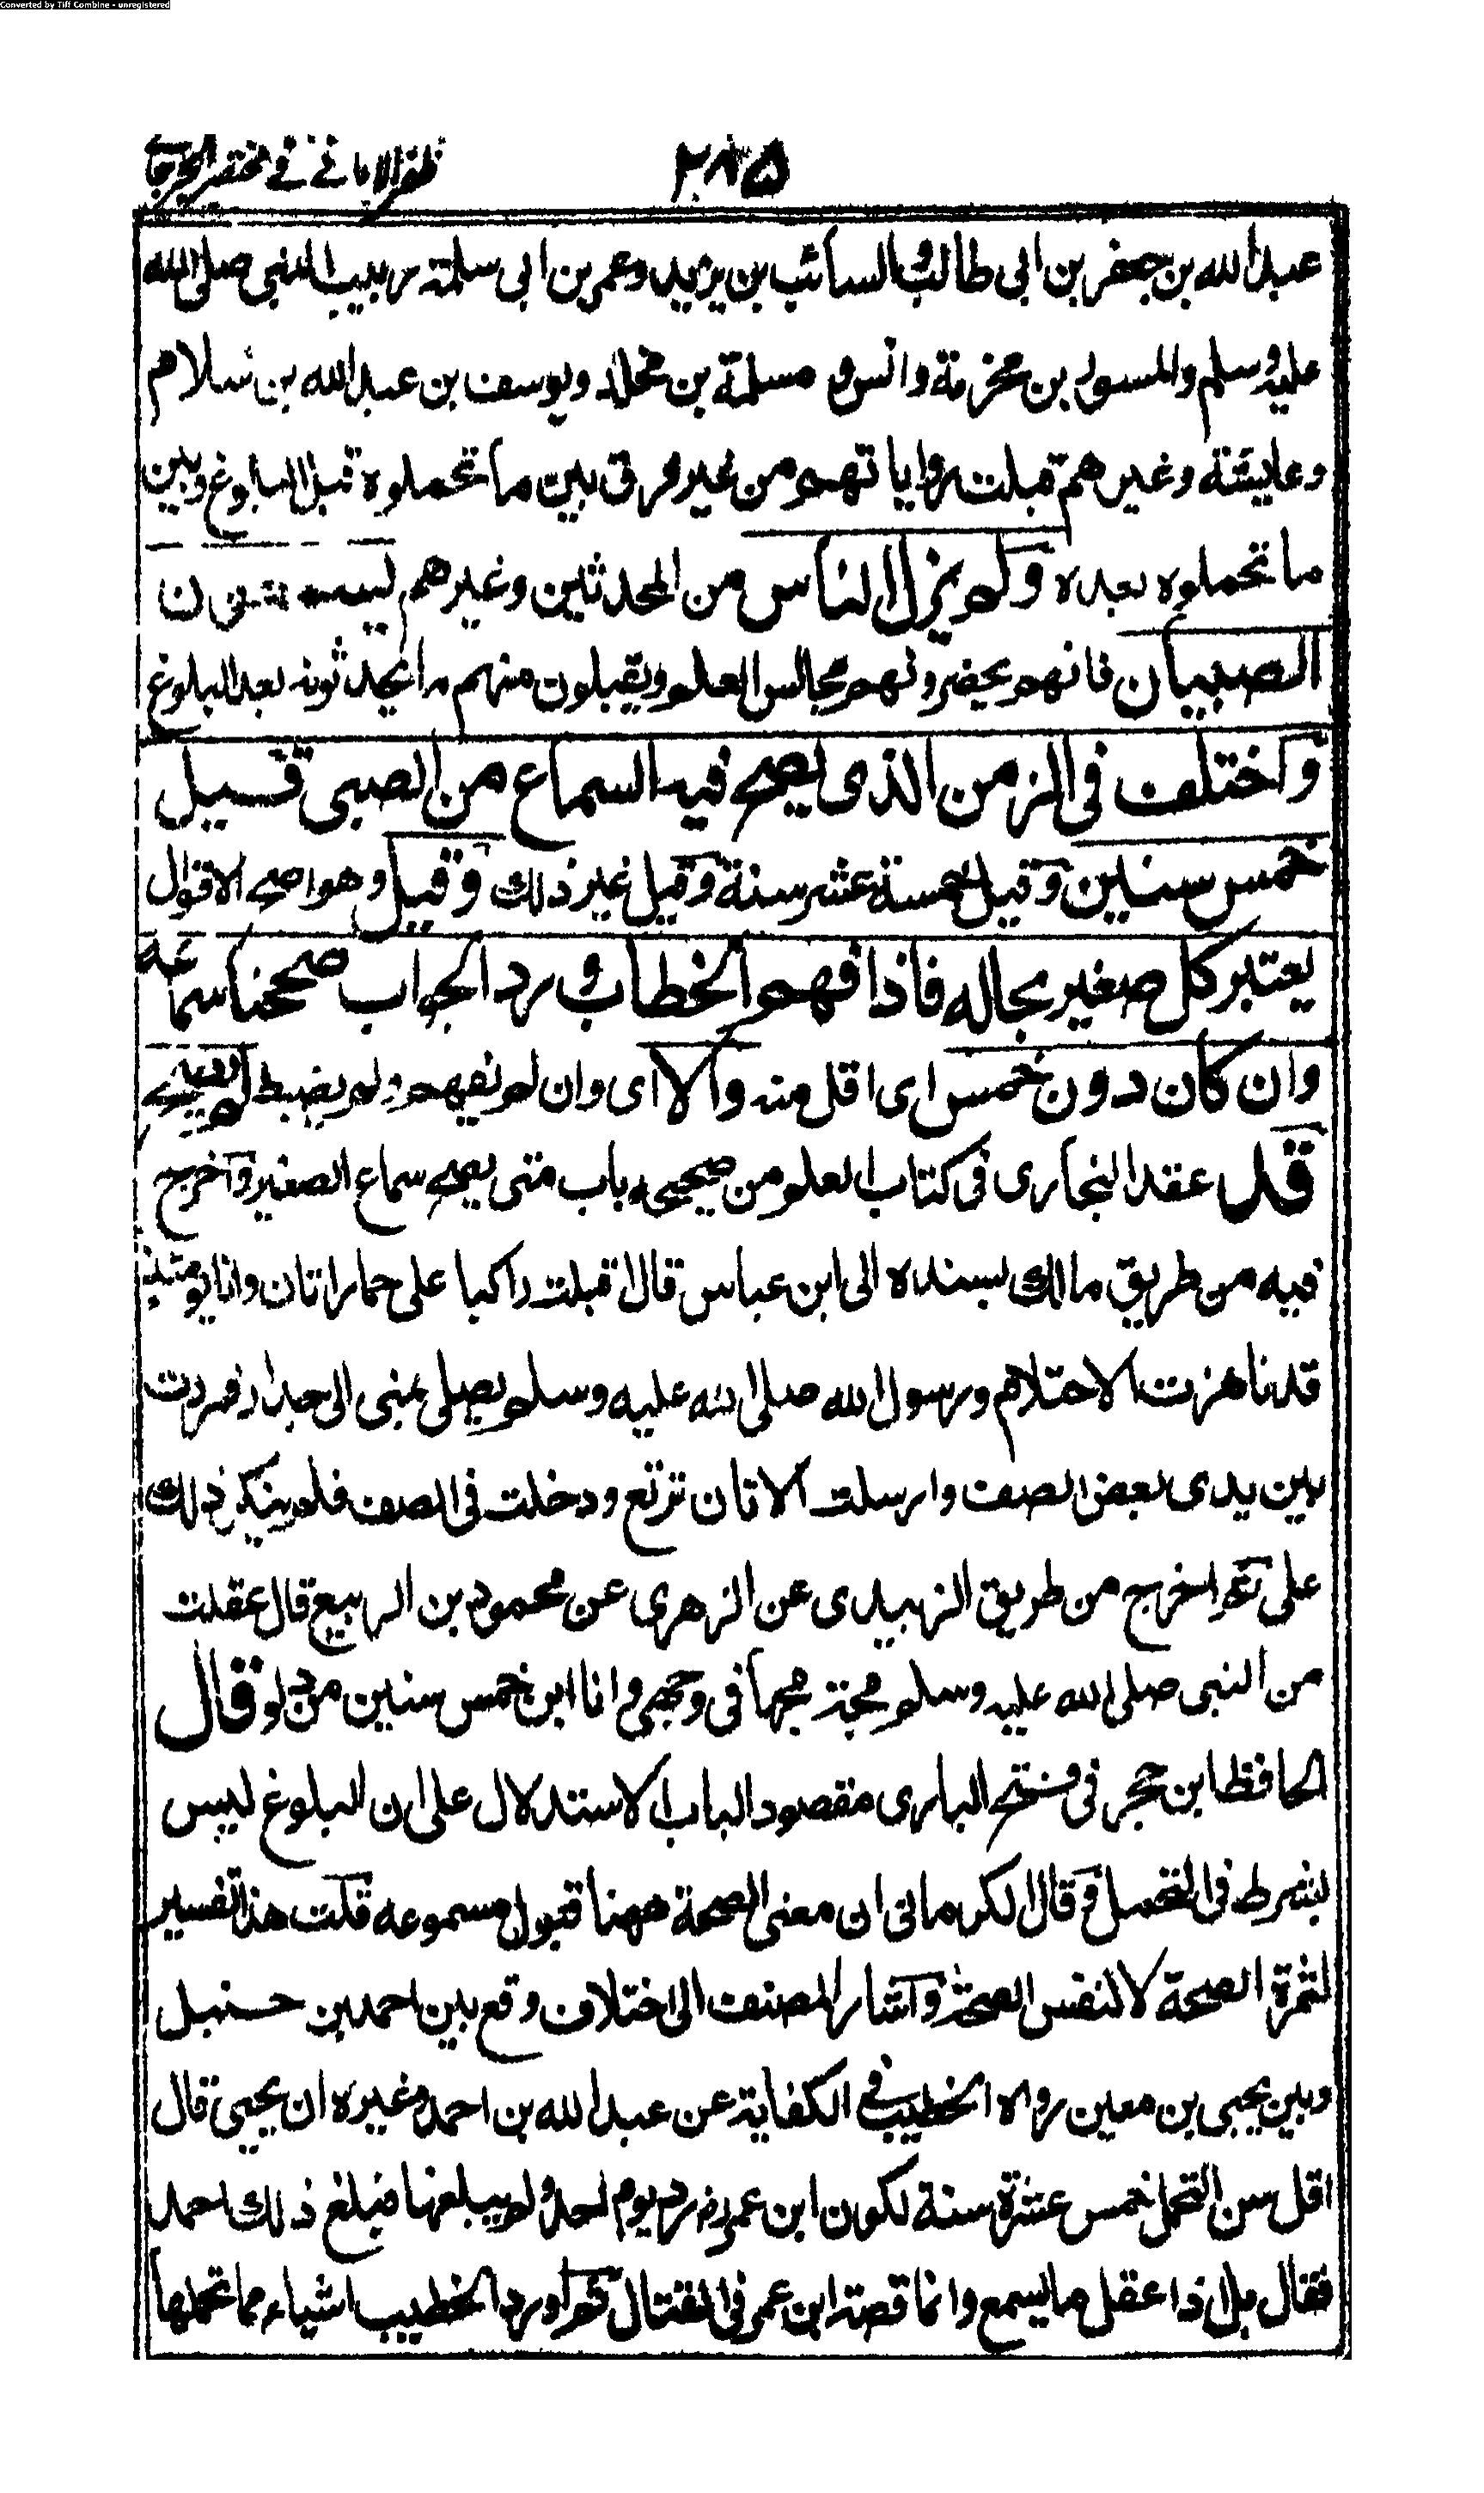 Converted by Tiff Combine - unregistered
٢٨٥ ظفر الاماني في مختصر الجرجاني
عبد الله بن جعفر بن ابي طالب والسائب بن يزيد وعمر بن ابي سلمة ربيب النبي صلى الله
عليه وسلم والمسور بن مخرمة وانس ومسلمة بن مخلد ويوسف بن عبد الله بن سلام
وعايشة وغيرهم قبلت رواياتهم من غير فرق بين ما تحملوه قبل البلوغ وبين
ما تحملوه بعده ولم يزل الناس من المحدثين وغيرهم يسمعون
الصبيان فانهم يحضرونهم مجالس العلم ويقبلون منهم ما يحدثونه بعد البلوغ
واختلف في الزمن الذي يصح فيه السماع من الصبي قيل
خمس سنين وقيل خمسة عشر سنة وقيل غير ذلك وقيل وهو اصح الاقوال
يعتبر كل صغير بحاله فاذا فهم الخطاب ورد الجواب صححنا سماعه
وان كان دون خمس اى اقل منه والا اى وان لم يفهم ولم يضبط لم يصح
قد عقد البخاري في كتاب العلم من صحيحه باب متى يصح سماع الصغير واخرج
فيه من طريق مالك بسنده الى ابن عباس قال اقبلت راكبا على حمار اتان وانا يومئذ
قد ناهزت الاحتلام ورسول الله صلى الله عليه وسلم يصلى بمنى الى جدار فمررت
بين يدى بعض الصف وارسلت الاتان ترتع ودخلت في الصف فلم ينكر ذلك
على ثم اخرج من طريق الزبيدى عن الزهرى عن محمود بن الربيع قال عقلت
من النبي صلى الله عليه وسلم مجة مجها في وجهى وانا ابن خمس سنين من دلو قال
الحافظ ابن حجر في فتح البارى مقصود الباب الاستدلال على ان البلوغ ليس
بشرط في التحمل وقال الكرماني ان معنى الصحة ههنا قبول مسموعه قلت هذا تفسير
لثمرة الصحة لا لنفس الصحة واشار المصنف الى اختلاف وقع بين احمد بن حنبل
وبين يحيى بن معين رواه الخطيب في الكفاية عن عبد الله بن احمد وغيره ان يحيى قال
اقل سن التحمل خمس عشرة سنة لكون ابن عمر رد يوم احد ولم يبلغها فبلغ ذلك احمد
فقال بل اذا عقل ما يسمع وانما قصة ابن عمر في القتال ثم اورد الخطيب اشياء مما تحملها